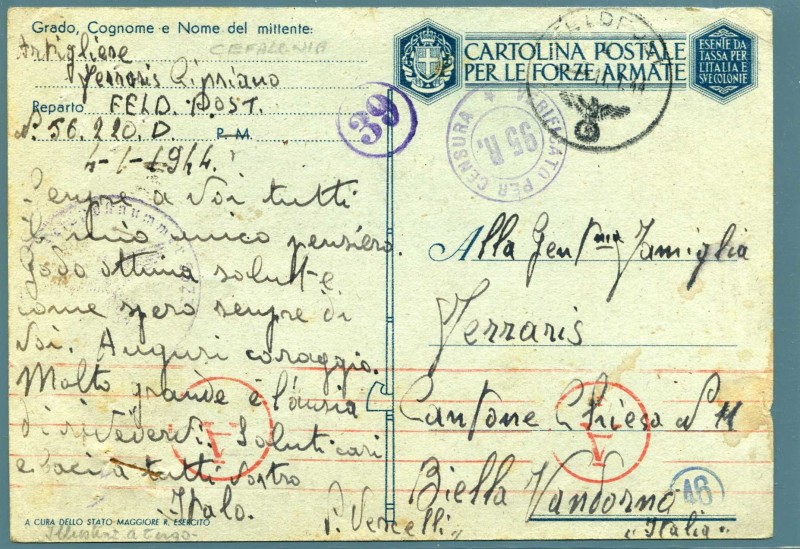 Grado, Cognome e Nome del mittente:
CEFALONIA
Artigliere
Ferraris Cipriano
Reparto FELD. POST.
N. 56.220.D P. M.
4-1-1944.
Sempre a voi tutti
il mio unico pensiero.
Godo ottima salute
come spero sempre di
voi. Auguri coraggio.
Molto grande è l'ansia
di rivedervi. Saluti cari
e baci a tutti vostro
Italo.
A CURA DELLO STATO MAGGIORE R. ESERCITO
39
CARTOLINA POSTALE
PER LE FORZE ARMATE
ESENTE DA
TASSA PER
L'ITALIA E
SVE COLONIE
VERIFICATO PER CENSURA
95 R.
Alla Gen.ma Famiglia
Ferraris
Cantone Chiesa N 11
Biella Vandorno
46
P. Vercelli
"Italia"
A
A